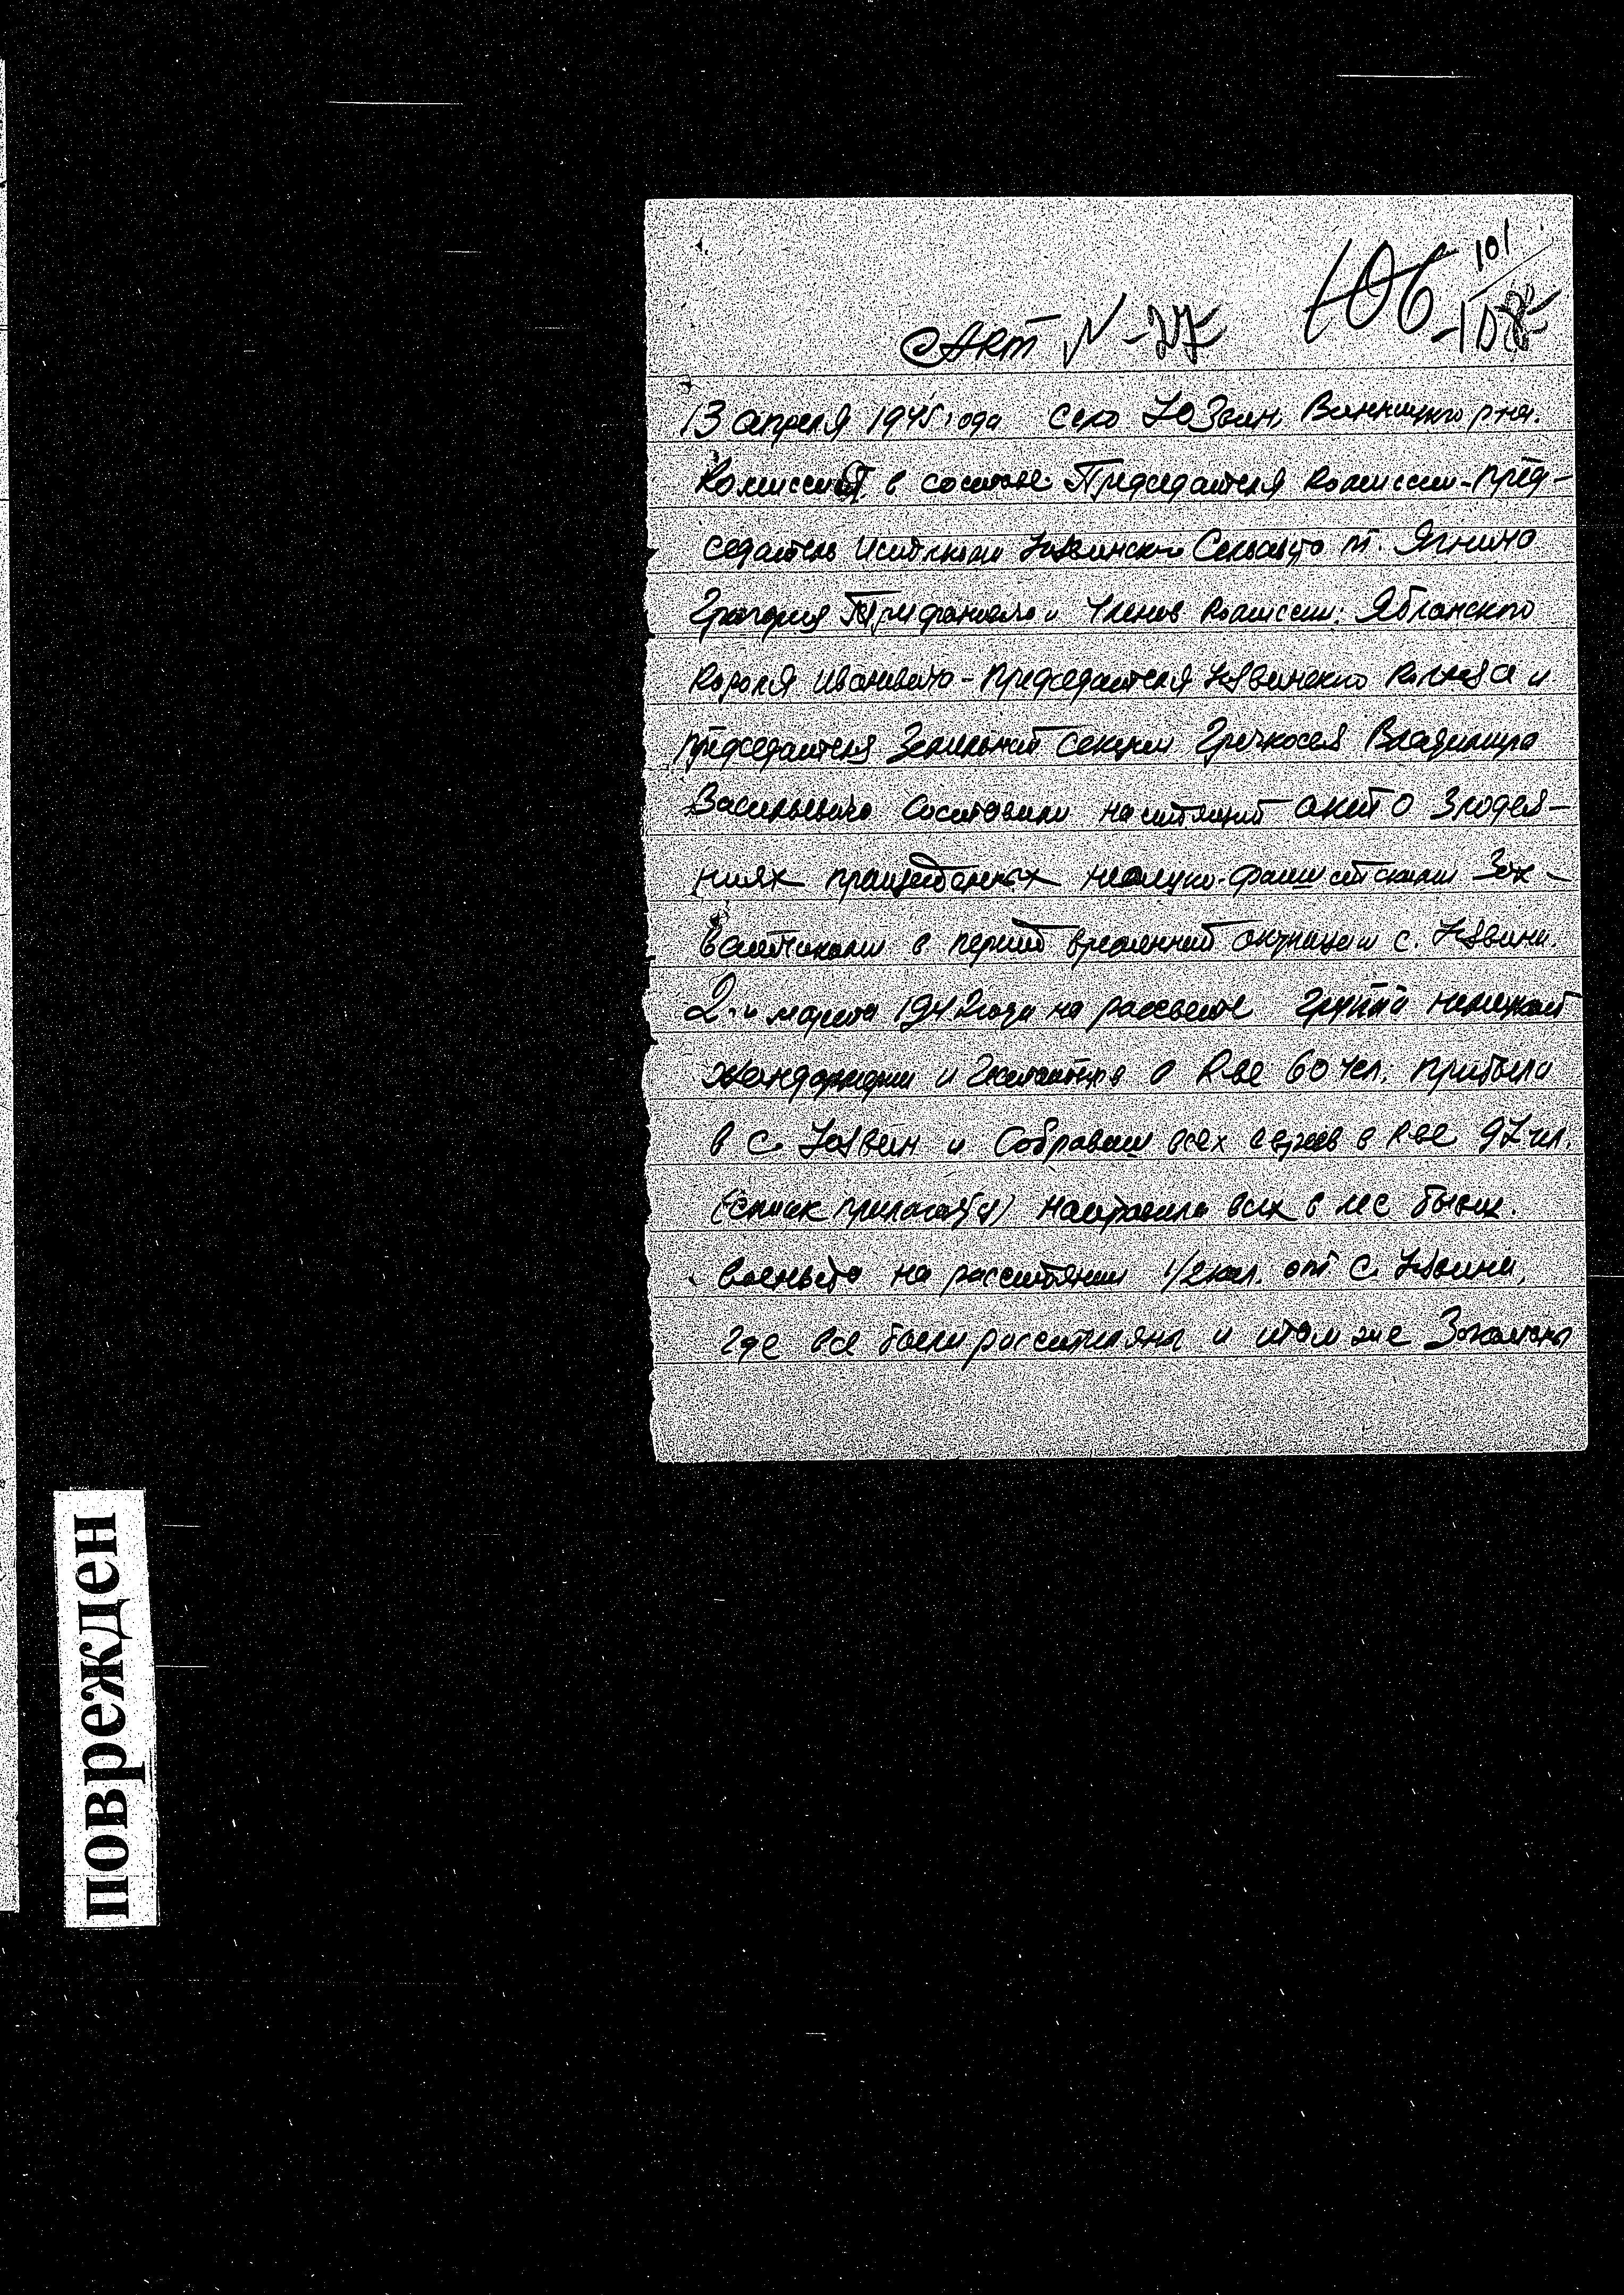 101
106
Акт N-27
13 апреля 1945 года село Юзвин, Винницкого р-на.
Комиссия в составе: Председателя комиссии-пред-
седатель Юзвинского Сельсовета т. Ягнича
Григория Трифоновича и Членов комиссии: Яблонского
Ивановича - председателя Юзвинского колхоза и
председателя Земельной секции Гречкосея Владимира
Васильевича составили настоящий акт о Злодея-
ниях немецко-фашистскими Зах-
ватчиками в период временной окупации с. Юзвина.
2-го марта 1942 года на рассвете группа немецкой
жандармерии и гештапа в к-ве 60 чел; прибыла
в с. Юзвин и Собравши всех евреев в к-ве 97 чел.
(список прилогается) направила всех в лес бывш.
военвета на расстоянии 1/2 кил. от с. Юзвина,
где все были расстиляны и там же Закопаны
поврежден